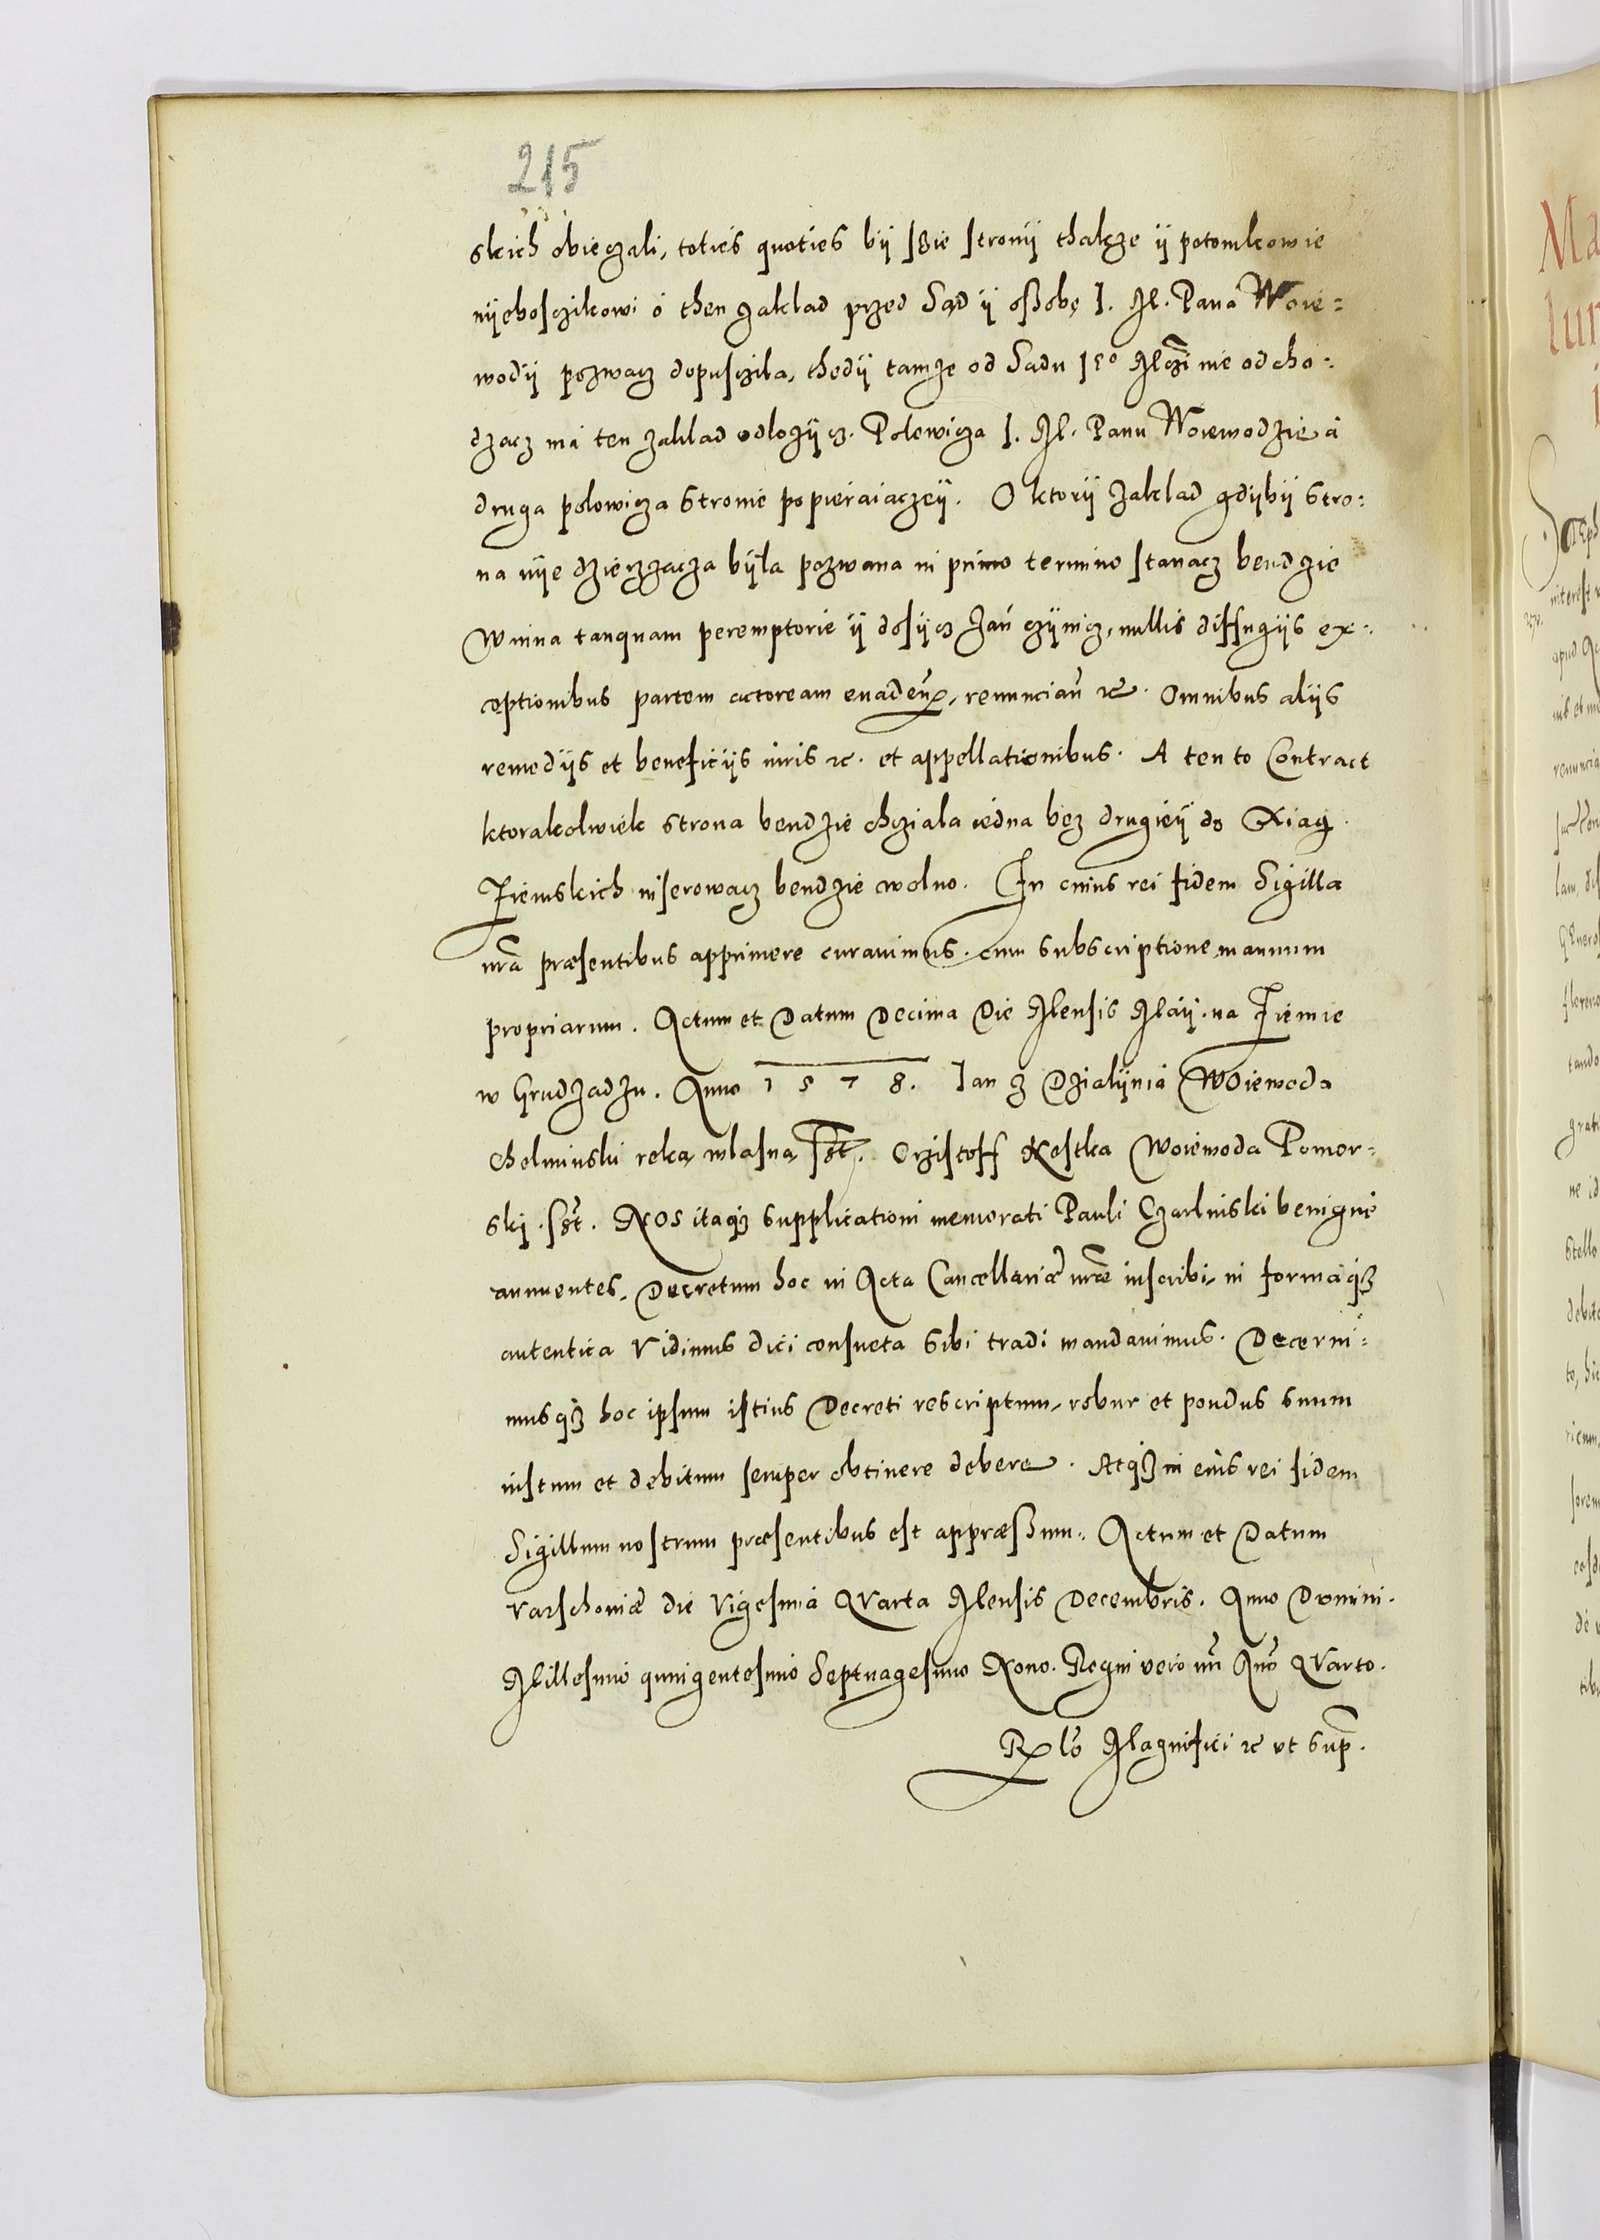 215
skich obieczali, toties quoties bÿ sßie stronÿ thakże ÿ potomkowie
nÿeboszcżikowi o then zaklad przed Sąd ÿ osßobę J. M. Pana Woie=
wodÿ pozwacz dopuscżila, thedÿ tamże od Sadu Jeº Mczi nie odcho=
dzacz ma ten zaklad odlożÿcz. Polowicza J. M. Panu Woiewodzie a
druga polowicza stronie popieraiaczeÿ. O ktorÿ zaklad gdÿbÿ stro=
na nÿe dzierżacza bÿla pozwana in primo termino stanacz bendzie
winna tanquam peremptorie ÿ dosÿcz zań czÿnicz, nullis diffugÿs ex=
ceptionibus partem actoream euadeñ, renunciañ etc. Omnibus alÿs
remedÿs et beneficÿs iuris etc. et appellationibus. A ten to Contract
ktorakolwiek strona bendzie chciala iedna bez drugieÿ do Xiag
Ziemskich inserowacz bendzie wolno. In cuius rei fidem Sigilla
nra̅ præsentibus apprimere curauimus. cum subscriptione manuum
propriarum. Actum et Datum Decima Die Mensis Maÿ. na Ziemie
w Grudzadzu. Anno 1578. Jan z Dzialÿnia Woiewoda
chelminski reką wlasną sst. Crzistoff Kostka Woiewoda Pomor=
ski. sst. Nos itaqз supplicationi memorati Pauli Czarlinski benigne
annuentes, Decretum hoc in Acta Cancellariæ nræ inscribi, in formaqз
autentica Vidimus dici consueta sibi tradi mandauimus. Decerni=
musqз hoc ipsum istius Decreti rescriptum, robur et pondus suum
iustum et debitum semper obtinere debere. Atqз in eius rei fidem
Sigillum nostrum præsentibus est appræßum. Actum et Datum
Varschouiæ die Vigesima Qvarta Mensis Decembris. Anno Domini.
Millesimo quingentesimo Septuagesimo Nono. Regni vero nri Anno Qvarto.
Rlo Magnifici etc ut sup.